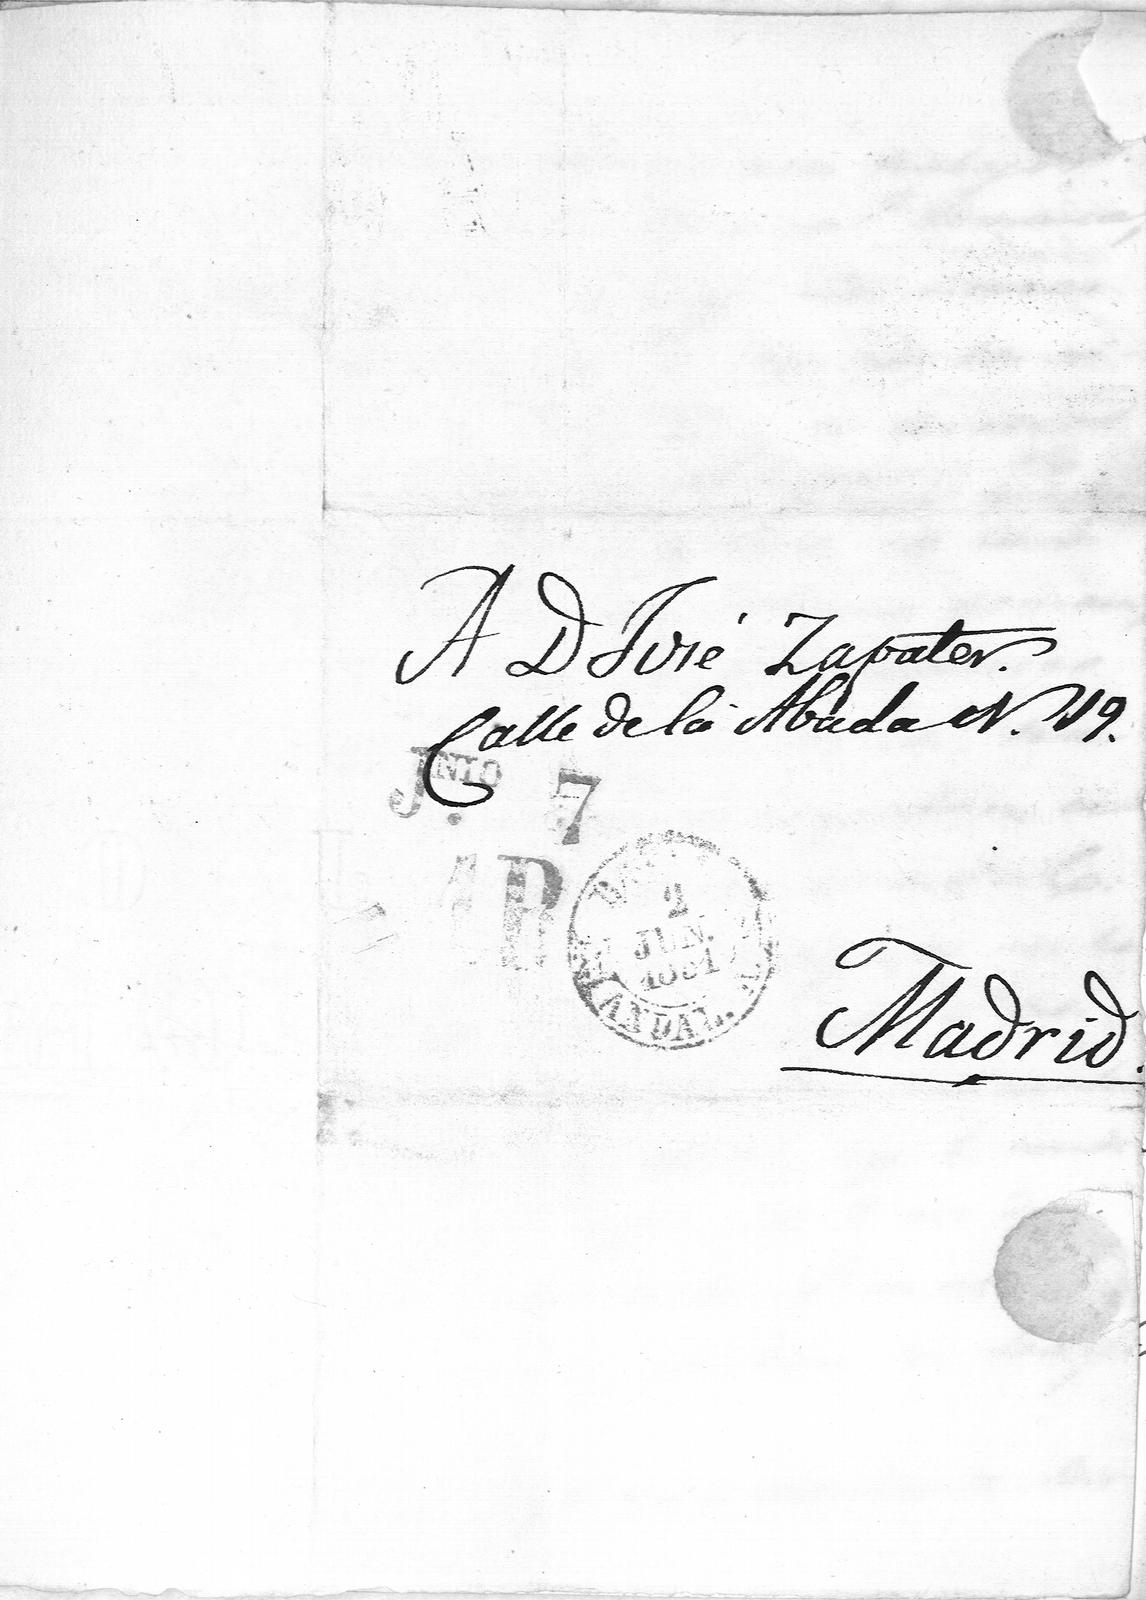 A D José Zapater.
Calle de la Abada N. 19.
JNIO. 7
2
JUN.
1851
ANDAL.
Madrid.